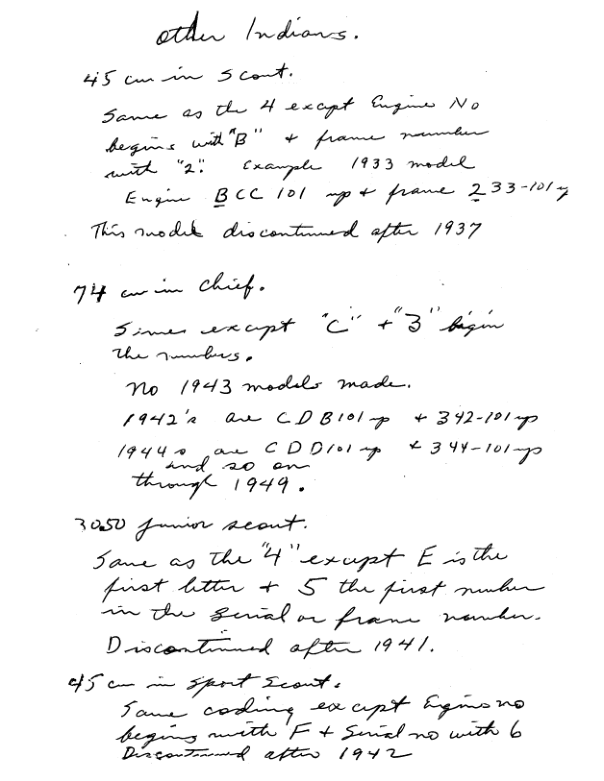 other Indians.
45 cu in Scout.
Same as the 4 except Engine No
begins with "B" + frame number
with "2". Example 1933 model
Engine BCC 101 up + frame 233-101 up
This model discontinued after 1937
74 cu in Chief.
Same except "C" + "3" begin
the numbers.
No 1943 models made.
1942's are CDB101 up + 342-101 up
1944s are CDD101 up + 344-101 up
and so on
through 1949.
30.50 junior scout.
Same as the "4" except E is the
first letter + 5 the first number
in the serial or frame number.
Discontinued after 1941.
45 cu in Sport Scout.
Same coding except Engine no
begins with F + Serial no with 6
Discontinued after 1942